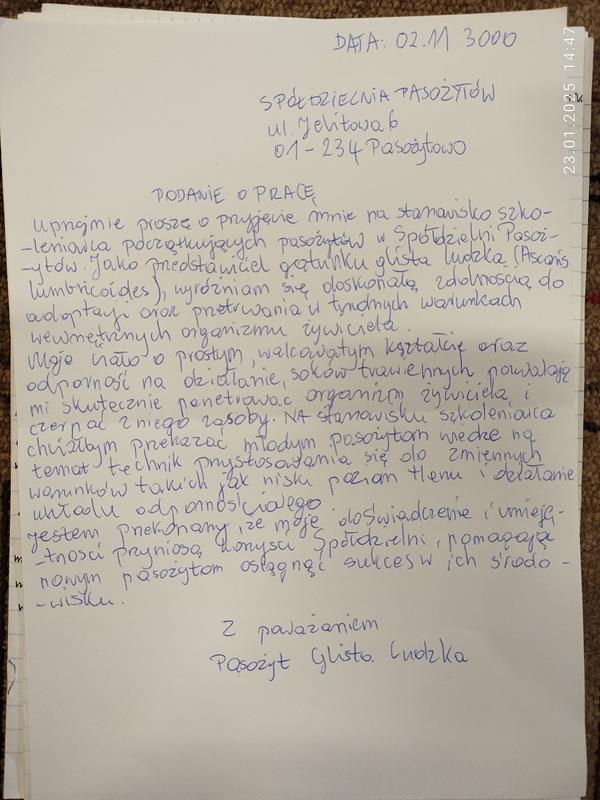 DATA: 02.11.3000
SPÓŁDZIELNIA PASOŻYTÓW
ul. Jelitowa 6
01-234 Pasożytowo
PODANIE O PRACĘ
Uprzejmie proszę o przyjęcie mnie na stanowisko szko-
-leniowca początkujących pasożytów w Spółdzielni Pasoż-
-ytów. Jako przedstawiciel gatunku glista ludzka (Ascaris
lumbricoides), wyróżniam się doskonałą zdolnością do
adaptacji oraz przetrwania w trudnych warunkach
wewnętrznych organizmu żywiciela.
Moje ciało o prostym, walcowatym kształcie oraz
odporność na działanie, soków trawiennych pozwalają
mi skutecznie penetrować organizm żywiciela i
czerpać z niego zasoby. NA stanowisku szkoleniowca
chciałbym przekazać młodym pasożytom wiedzę na
temat technik przystosowania się do zmiennych
warunków takich jak niski poziom tlenu i działanie
układu odpornościowego
jestem przekonany, że moje doświadczenie i umieję-
-tności przyniosą korzyści Spółdzielni, pomagając
nowym pasożytom osiągnąć sukces w ich środo-
-wisku.
Z poważaniem
Pasożyt Glista Ludzka
23.01.2025 14:47